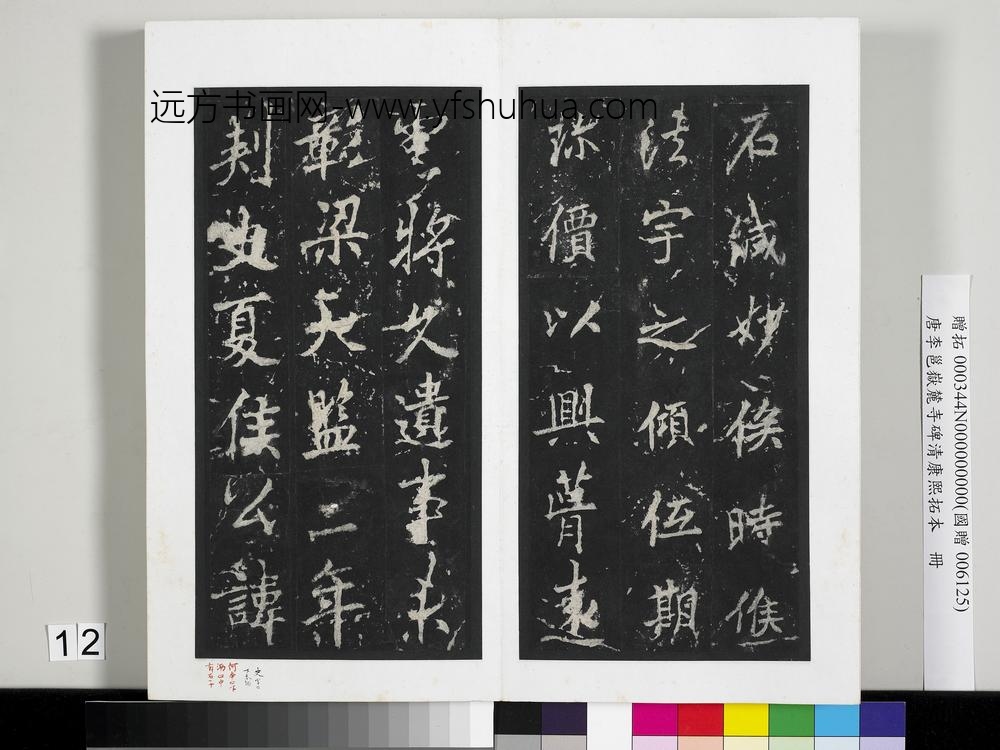 远方书画网-www.yfshuhua.com
石緘妙時
法宇之傾期
珍價以興
將久遺事未
梁天監二年
刺史夏侯公諱
贈拓 000344N000000000(國贈 006125)
唐李邕嶽麓寺碑清康熙拓本 冊
12